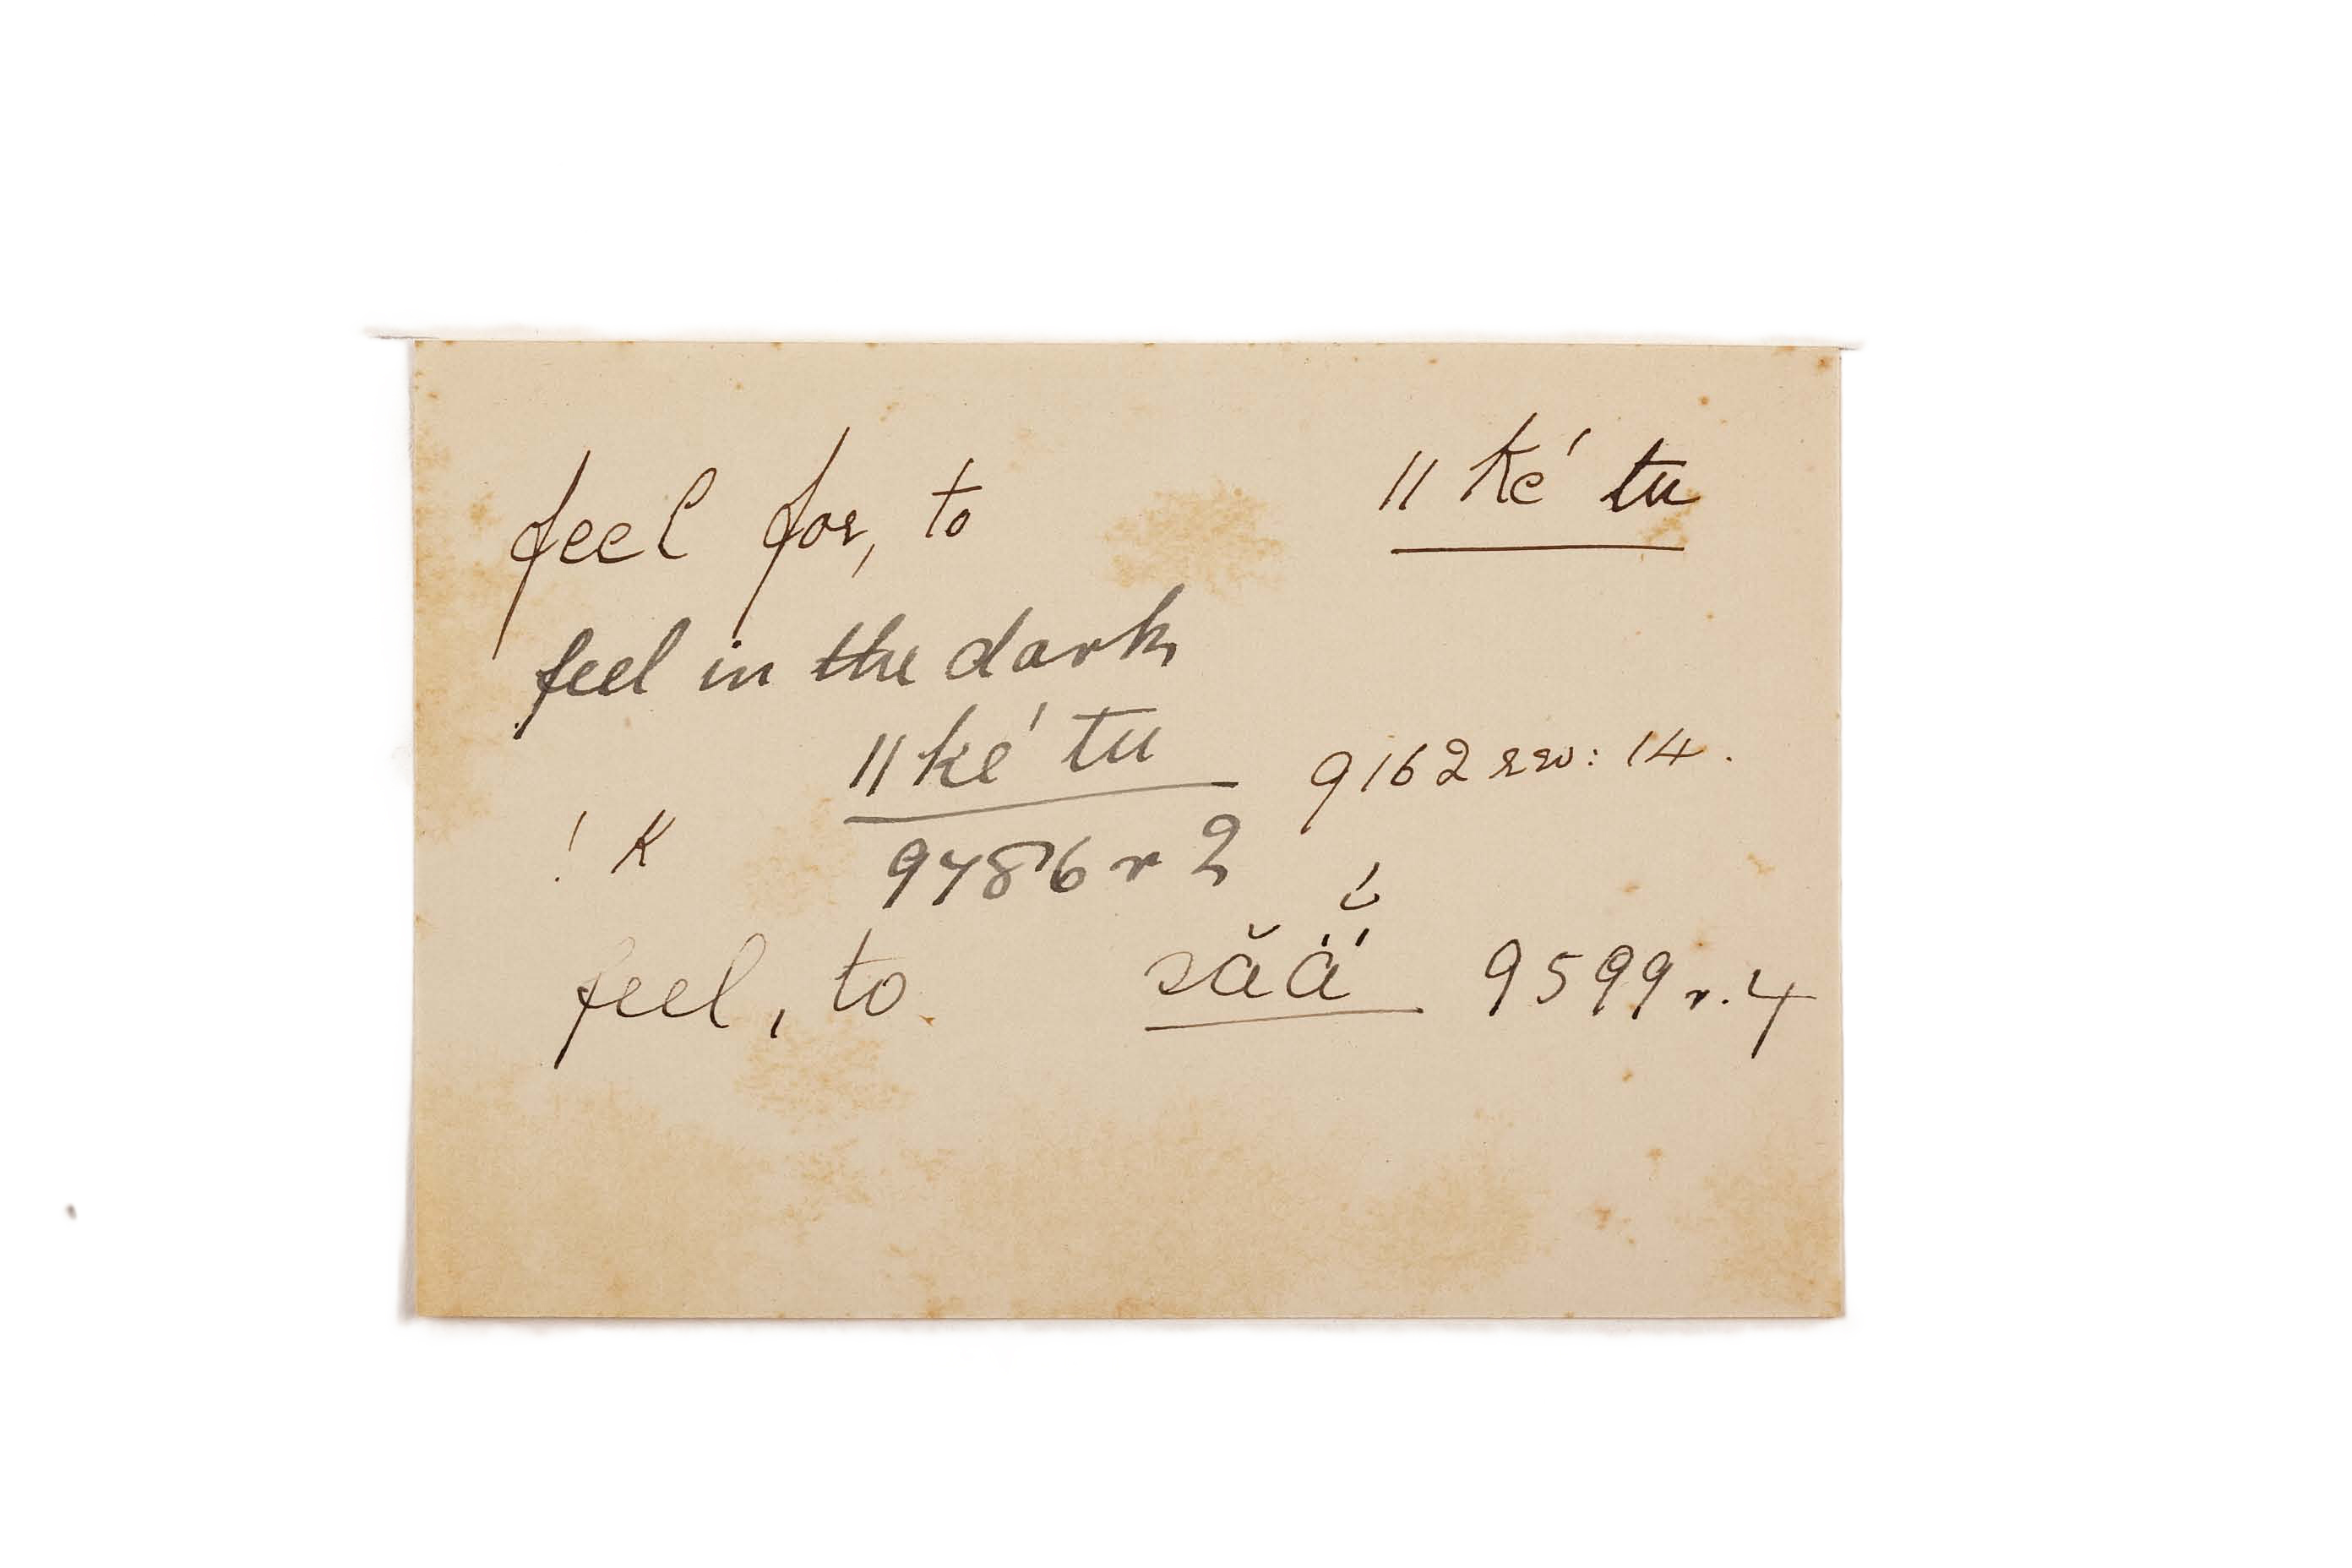 feel for, to ǁ ké tu
feel in the dark
ǁ ké tu 9162 rev: 14.
! K 9786 r 2
feel, to să ä́ 9599 r. 4